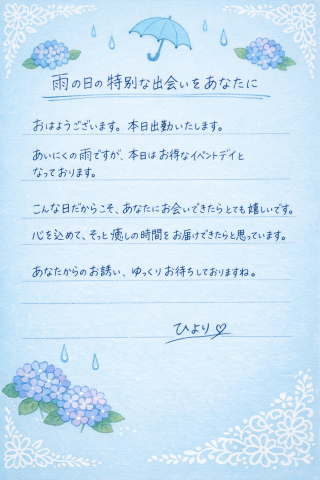 雨の日の特別な出会いをあなたに
おはようございます。本日出勤いたします。
あいにくの雨ですが、本日はお得なイベントデイと
なっております。
こんな日だからこそ、あなたにお会いできたらとても嬉しいです。
心を込めて、そっと癒しの時間をお届けできたらと思っています。
あなたからのお誘い、ゆっくりお待ちしておりますね。
ひより♡